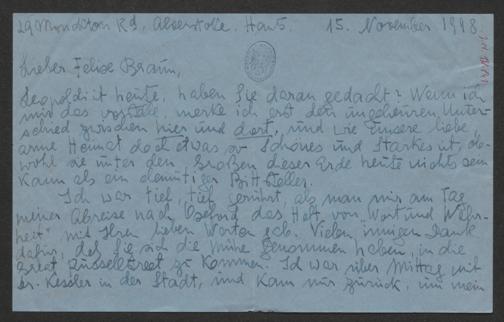 29 Monditon Rd, Alverstoke. Hants. 15. November 1948.
Lieber Felix Braun,
Leopoldi ist heute, haben Sie daran gedacht? Wenn ich
mir das vorstelle, merke ich erst den ungeheuren Unter-
schied zwischen hier und dort, und wie unsere liebe,
arme Heimat doch etwas so Schönes und Starkes ist, ob-
wohl sie unter den Großen dieser Erde heute nichts sein
kann als ein demütiger Bittsteller.
Ich war tief, tief gerührt, als man mir am Tag
meiner Abreise nach das Heft von „Wort und Wahr-
heit" mit Ihren lieben Worten gab. Vielen innigen Dank
dafür, daß Sie sich die Mühe genommen haben, in die
Great Russell Street zu kommen. Ich war über Mittag mit
Dr. Kessler in der Stadt, und kam nur zurück, um mein